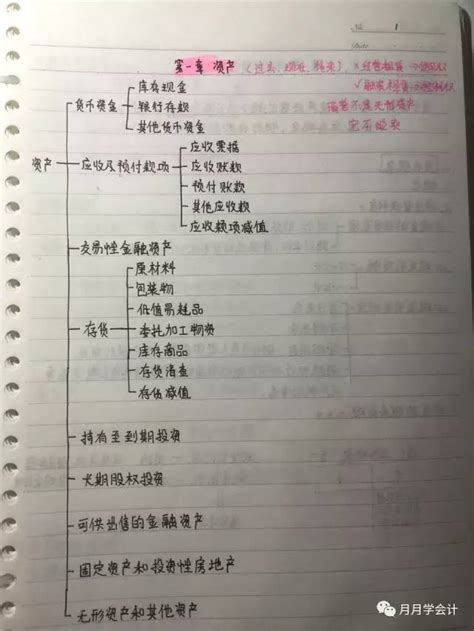 No. 1
Date
第一章 资产 (过去、现在、将来) ×经营租赁
√融资租赁
商誉不属无形资产
库存现金
货币资金 银行存款
其他货币资金
应收票据
资产 应收及预付款项 应收账款
预付账款
其他应收款
应收款项减值
交易性金融资产
原材料
包装物
低值易耗品
存货 委托加工物资
库存商品
存货清查
存货减值
持有至到期投资
长期股权投资
可供出售的金融资产
固定资产和投资性房地产
无形资产和其他资产
月月学会计